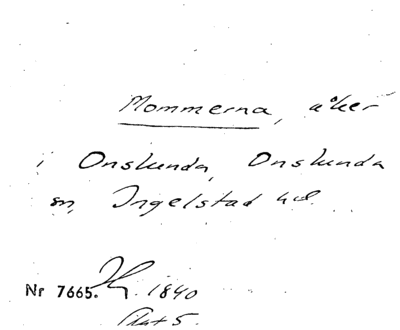 Mommerna, åker
i Onslunda, Onslunda
sn, Ingelstad hd.
Nr 7665. 1840
5.